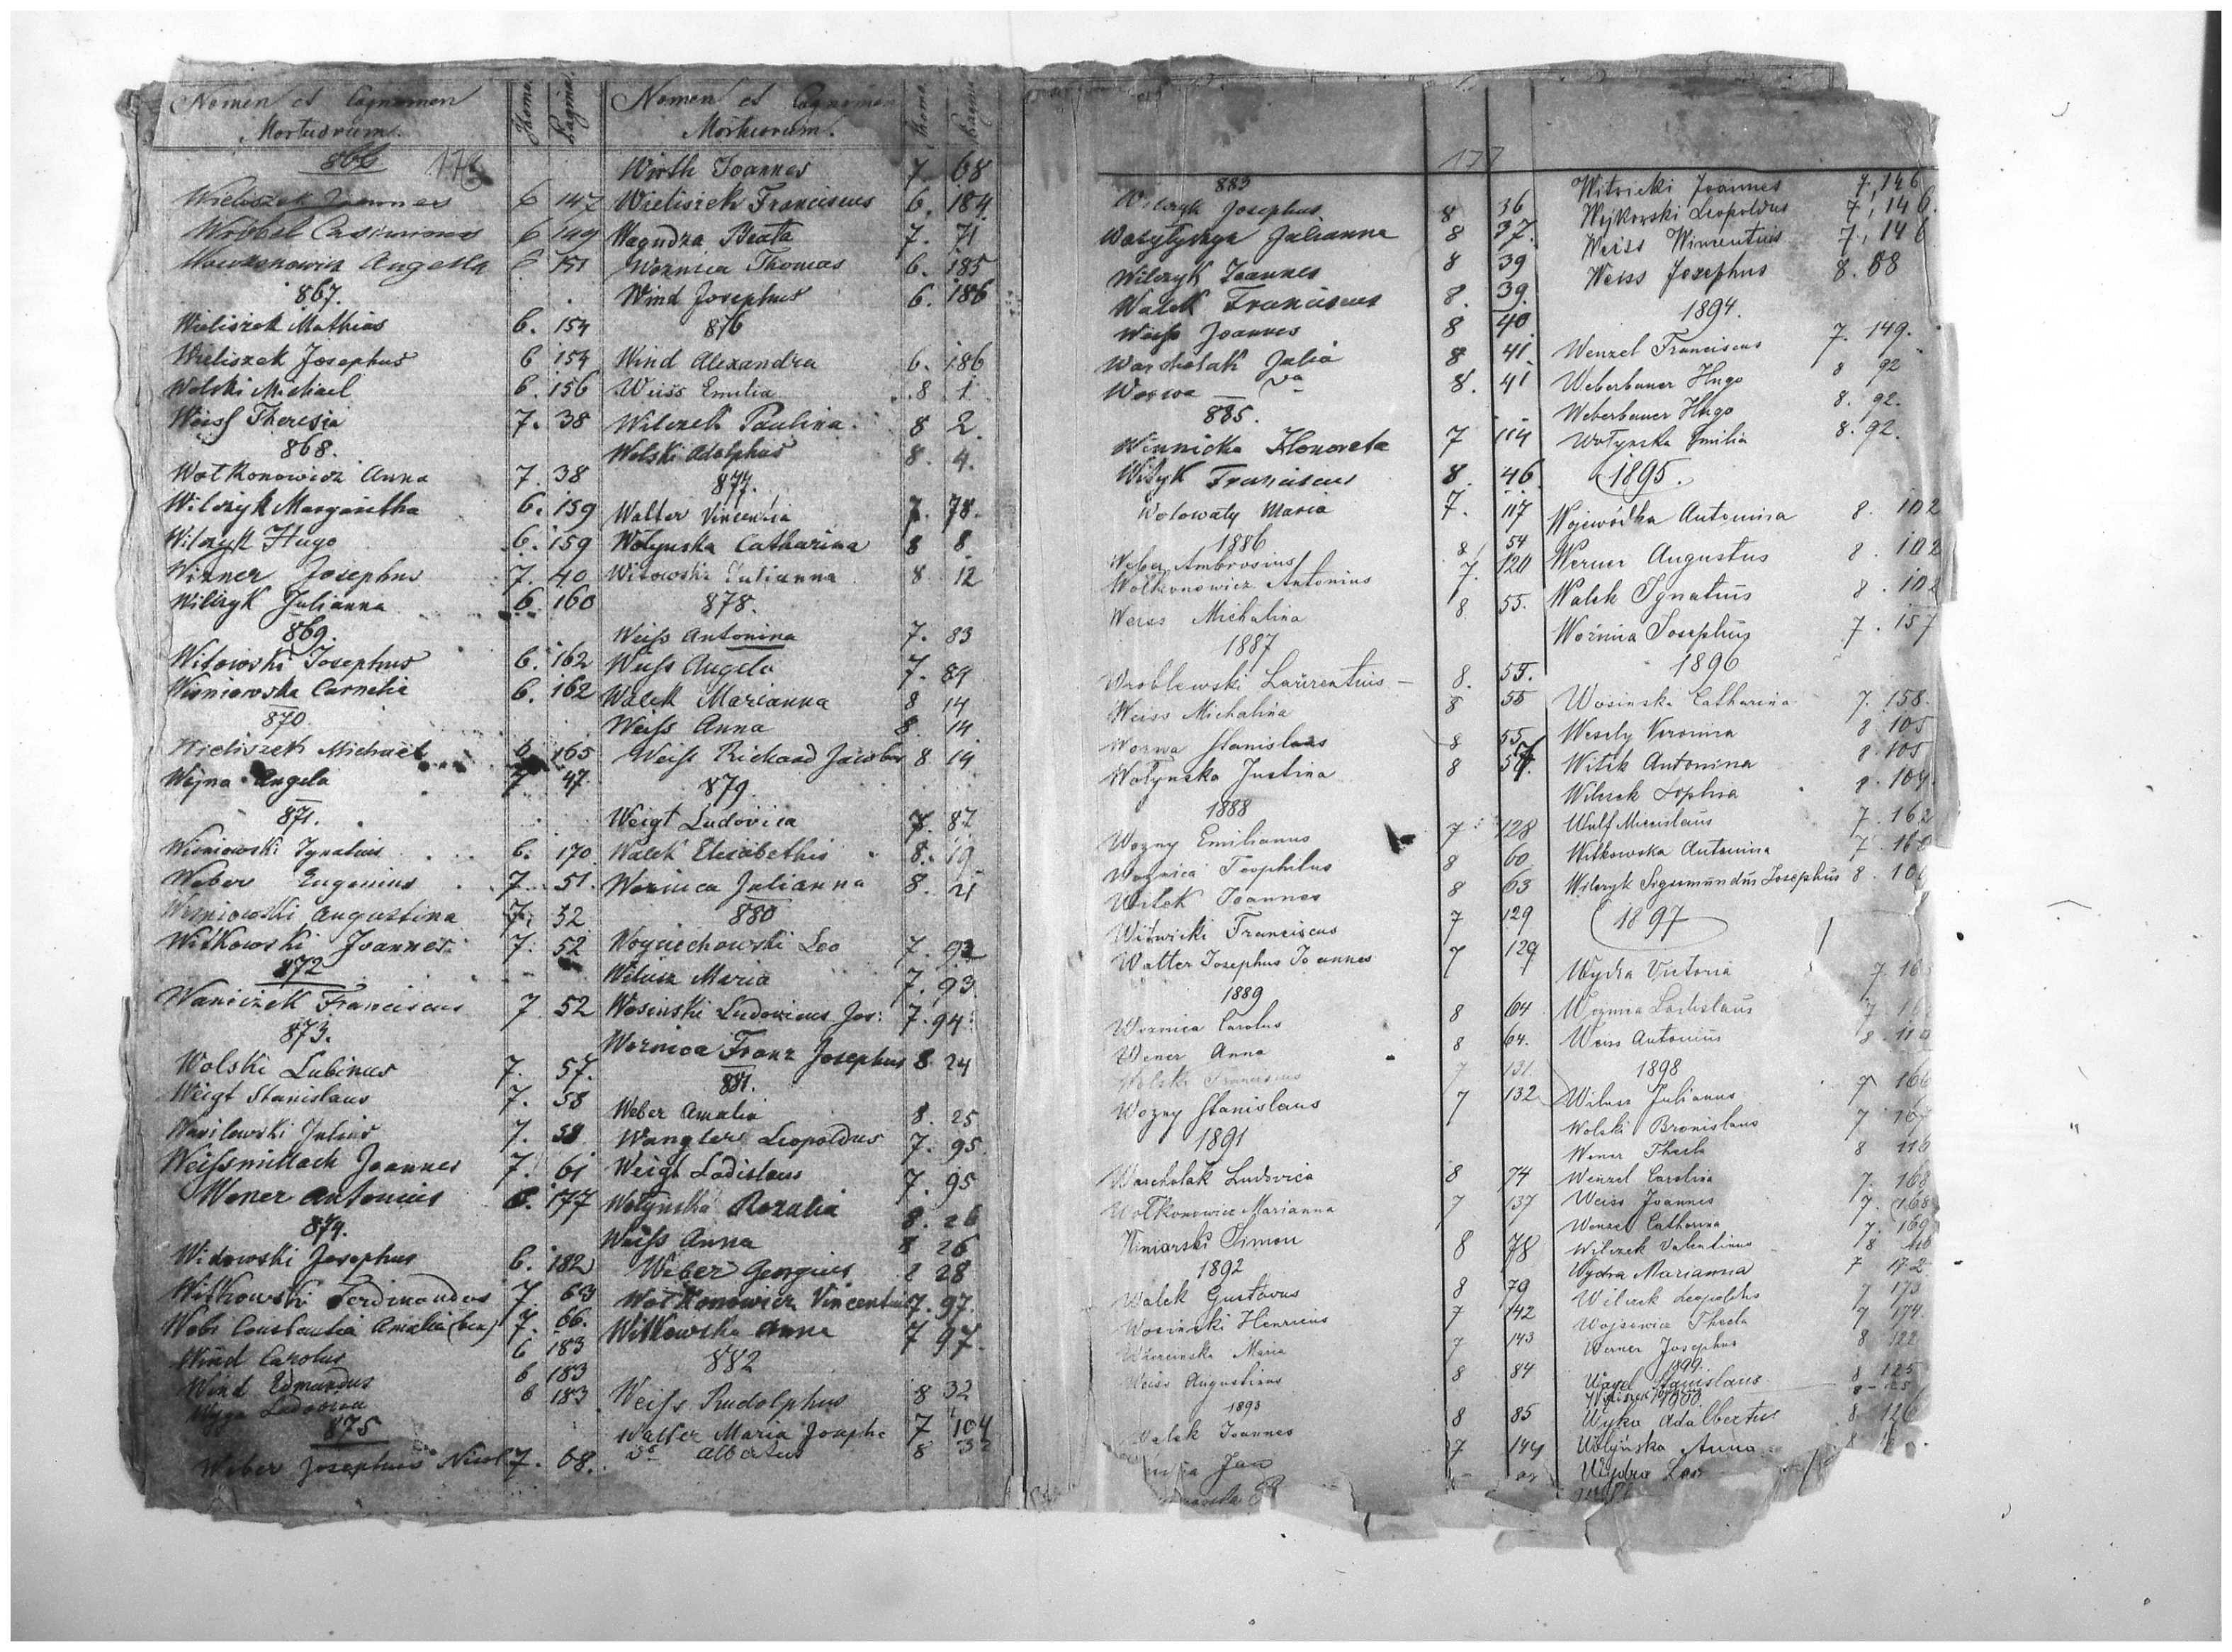 Nomen et Cognomen
Mortuorum.
Thoma
Pagina
866
176
Wieliszek Joannes 6 147
Wróbel Casimirus 6 149
Angella 6 151
867.
Wieliszek Mathias 6. 154
Wieliszek Josephus 6 154
Wolski Michael 6. 156
Weiss Theresia 7. 38
868.
Wołkonowicz Anna 7. 38
Wilczyk Margaretha 6. 159
Wilczyk Hugo 6. 159
Wizner Josephus 7. 40
Wilczyk Julianna 6. 160
869.
Witowski Josephus 6. 162
Wisniowska Cornelia 6. 162
870.
Wieliszek Michael 6. 165
Wojna Angela 7 47.
871.
Wisniowski Ignatius 6. 170
Weber Eugenius 7. 51.
Wisniowski Augustina 7. 52
Witkowski Joannes 7. 52
872
Waniczek Franciscus 7 52
873.
Wolski Lubinus 7. 57.
Weigt Stanislaus 7. 58
Wasilewski Julius 7. 59
Weissmillach Joannes 7. 61
Wener Antonius 6. 177
874.
Widowski Josephus 6. 182
Witkowski Ferdinandus 7 63
Constantia Amalia 7. 66.
Wind Carolus 6 183
Wind Edmundus 6 183
Ludovica 6 183
875
Weber Josephus Nicol 7. 68.
Nomen et Cognomen
Mortuorum.
Thoma
Pagina
Wirth Joannes 7 68
Wielisick Franciscus 6. 184.
Wagudza Beata 7. 71
Woznica Thomas 6. 185
Wind Josephus 6. 186
876
Wind Alexandra 6. 186
Weiss Emilia 8 1
Wilczek Paulina 8 2.
Wolski Adolphus 8. 4.
877.
Walter Vincentia 7. 78.
Wołynska Catharina 8 8
Witowski Julianna 8 12
878.
Weiss Antonina 7. 83
Weiss Angela 7. 84
Walek Marianna 8 14
Weiss Anna 8. 14.
Weiss Richard Jacobus 8 14
879.
Weigt Ludovica 7. 87
Walek Elisabethis 8. 19
Woznica Julianna 8. 21
880
Woyciechowski Leo 7. 92
Maria 7. 93.
Wosinski Ludovicus Jos: 7. 94.
Woznica Franz Josephus 8. 24
881.
Weber Amalia 8. 25
Wangler Leopoldus 7. 95.
Weigt Ladislaus 7. 95
Wołynska Rozalia 8. 26
Weiss Anna 8 26
Weber Georgius 8 28
Wołkonowicz Vincentius 7. 97.
Witkowska Anna 7 97.
882
Weiss Rudolphus 8 32
Walter Maria Josepha 7 104
do Albertus 8 32
177
883
Wilczyk Josephus 8 36
Julianna 8 37.
Wilczyk Joannes 8 39
Walek Franciscus 8. 39.
Weiss Joannes 8 40
Warcholak Julia 8 41
8. 41
885.
Winnicka Honorata 7 114
Witzyk Franciscus 8. 46
Wolowaty Maria 7. 117
1886
Weber Ambrosius 8 54
Wołkonowicz Antonius 7. 120
Weiss Michalina 8 55.
1887
Wroblewski Laurentius 8. 55.
Weiss Michalina 8 55
Worwa Stanislaus 8 55
Wołynska Justina 8
1888
Wozny Emilianus 7 128
Woznica Teophilus 8 60
Witek Joannes 8 63
Witwicki Franciscus 7 129
Walter Josephus Joannes 7 129
1889
Woznica Carolus 8 64
Wener Anna 8 64.
Wolski Franciscus 7 131
Wozny Stanislaus 7 132
1891
Warcholak Ludovica 8 74
Wołkonowicz Marianna 7 137
Winiarski Simon 8 78
1892
Walek Gustavus 8 79
Wosinski Henricus 7 142
Maria 7 143
Weiss Augustinus 8 84
1893
Walek Joannes 8 85
Jan 7 144
Witwicki Joannes 7, 146
Wejkowski Leopoldus 7, 146.
Weiss Wincentius 7, 146
Weiss Josephus 8. 88
1894.
Wenzel Franciscus 7. 149.
Weberbauer Hugo 8 92
Weberbauer Hugo 8. 92.
Wołynska Emilia 8. 92.
1895.
Wojewódka Antonina 8. 102
Werner Augustus 8. 102
Walek Ignatius 8. 102
Woźnica Josephus 7. 157
1896
Wosinska Catharina 7. 158.
Wesely Veronica 8 105
Witek Antonina 8. 105
Wilczek Sophia 8. 104.
Wulf Miecislaus 7. 162
Witkowska Antonina 7. 160
Wilczyk Sigismundus Josephus 8
1897
Wydra Victoria 7
Woznica Ladislaus 7
Weiss Antonius 8. 110
1898
Julianus 7 166
Wolski Bronislaus 7 167
Wener Thecla 8 116
Wenzel Carolina 7. 168
Weiss Joannes 7. 168
Wenzel Catharina 7. 169
Wilczek Valentinus 8
Wydra Marianna 7 172
Wilczek Leopoldus 7 173
Wojsewicz Thecla 7 174.
Werner Josephus 8 122
1899.
Wawel Stanislaus 8 125
1900.
Wyka Adalbertus 8 126
Wołyńska Anna 8
Wydra